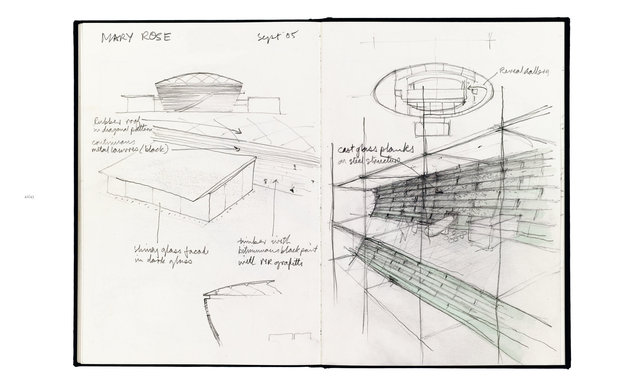 MARY ROSE
Sept '05
Rubber roof
in diagonal pattern
continuous
metal louvres (black)
shiny glass facad
in dark glass
timber with
bitumimous black paint
with MR grafitti
Reveal Gallery
cast glass planks
on steel structure